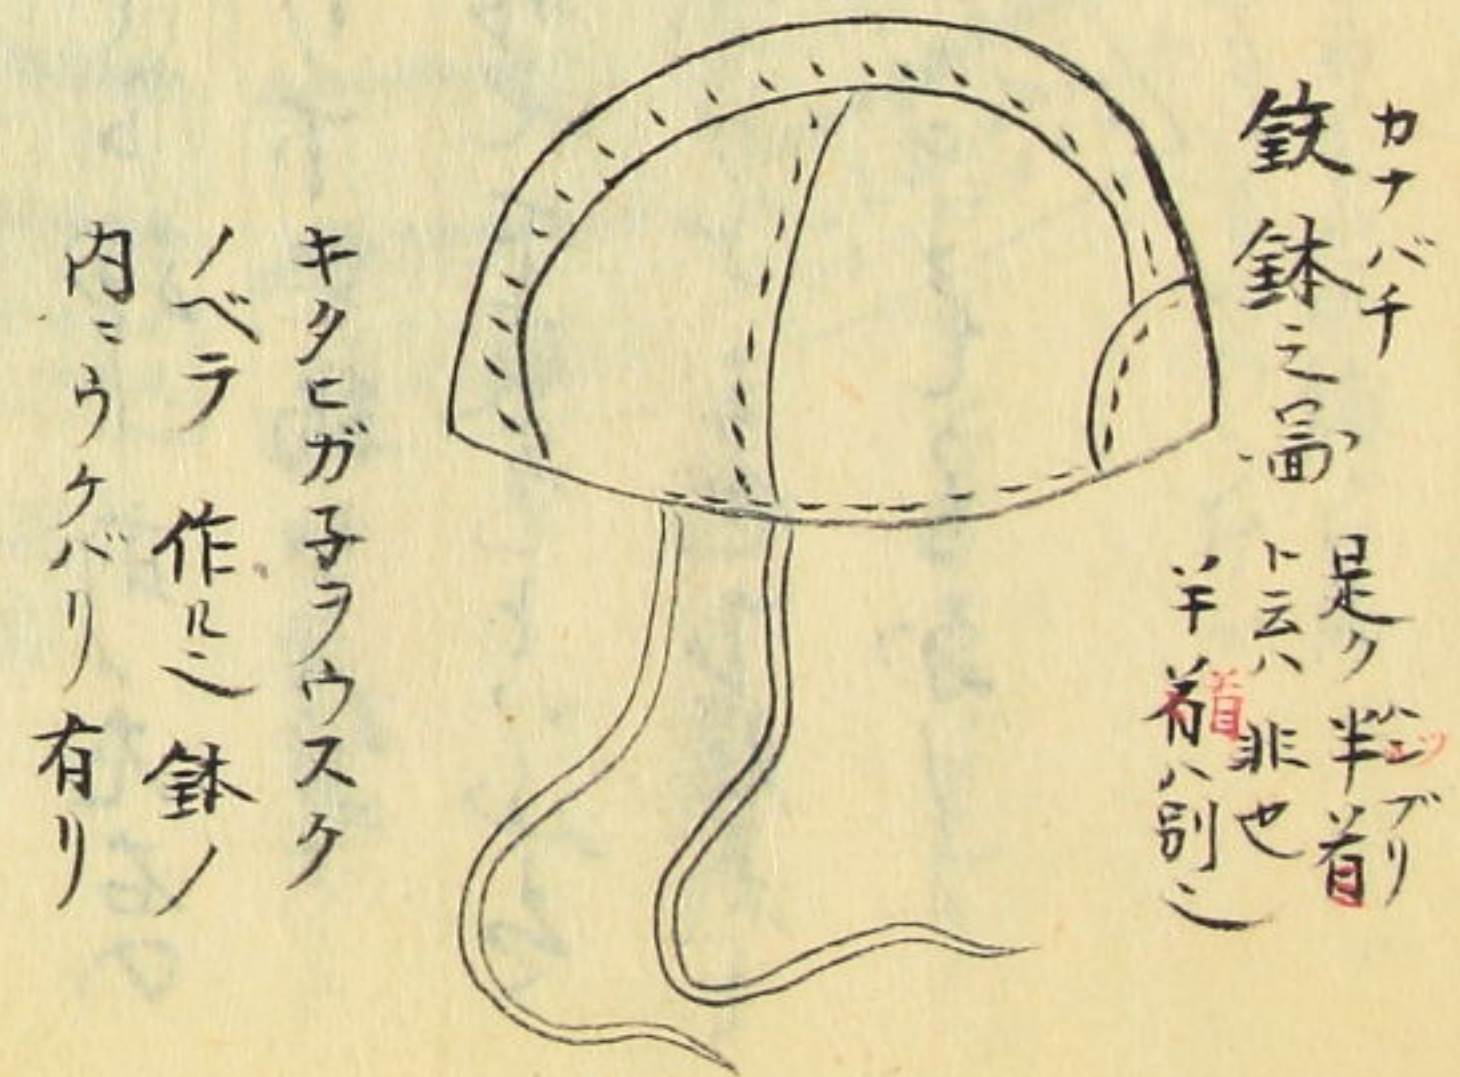 カナバチ
鉄鉢之圖
是ヲ半首ハツブリ
ト云ハ非也
半首ハ別也
キタヒガ子ヲウスク
ノベテ作ル也鉢ノ
内ニウケバリ有リ